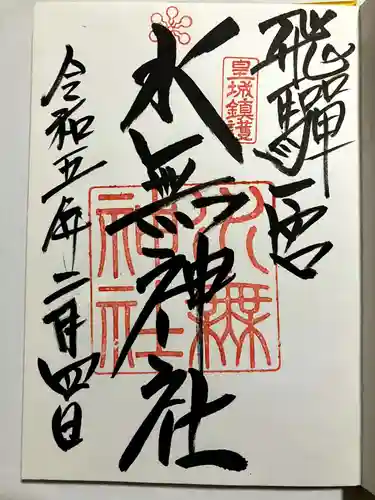 飛騨一宮
皇城鎮護
水無神社
水無神社
令和五年二月四日